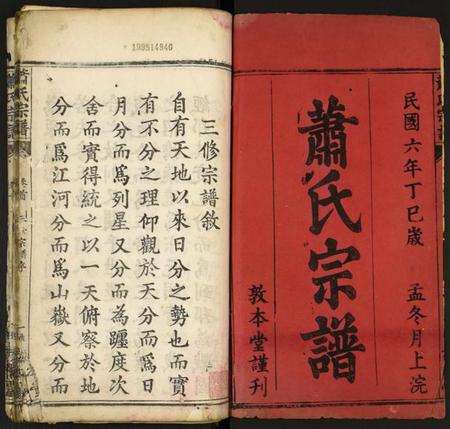 民國六年丁巳歲 孟冬月上浣
蕭氏宗譜
敦本堂謹刊
199514840
三修宗譜敘
自有天地以來日分之勢也而實
有不分之理仰觀於天分而爲日
月分而爲列星又分而為躔度次
舍而實得統之以一天俯察於地
分而爲江河分而爲山嶽又分而
蕭氏宗譜
卷首